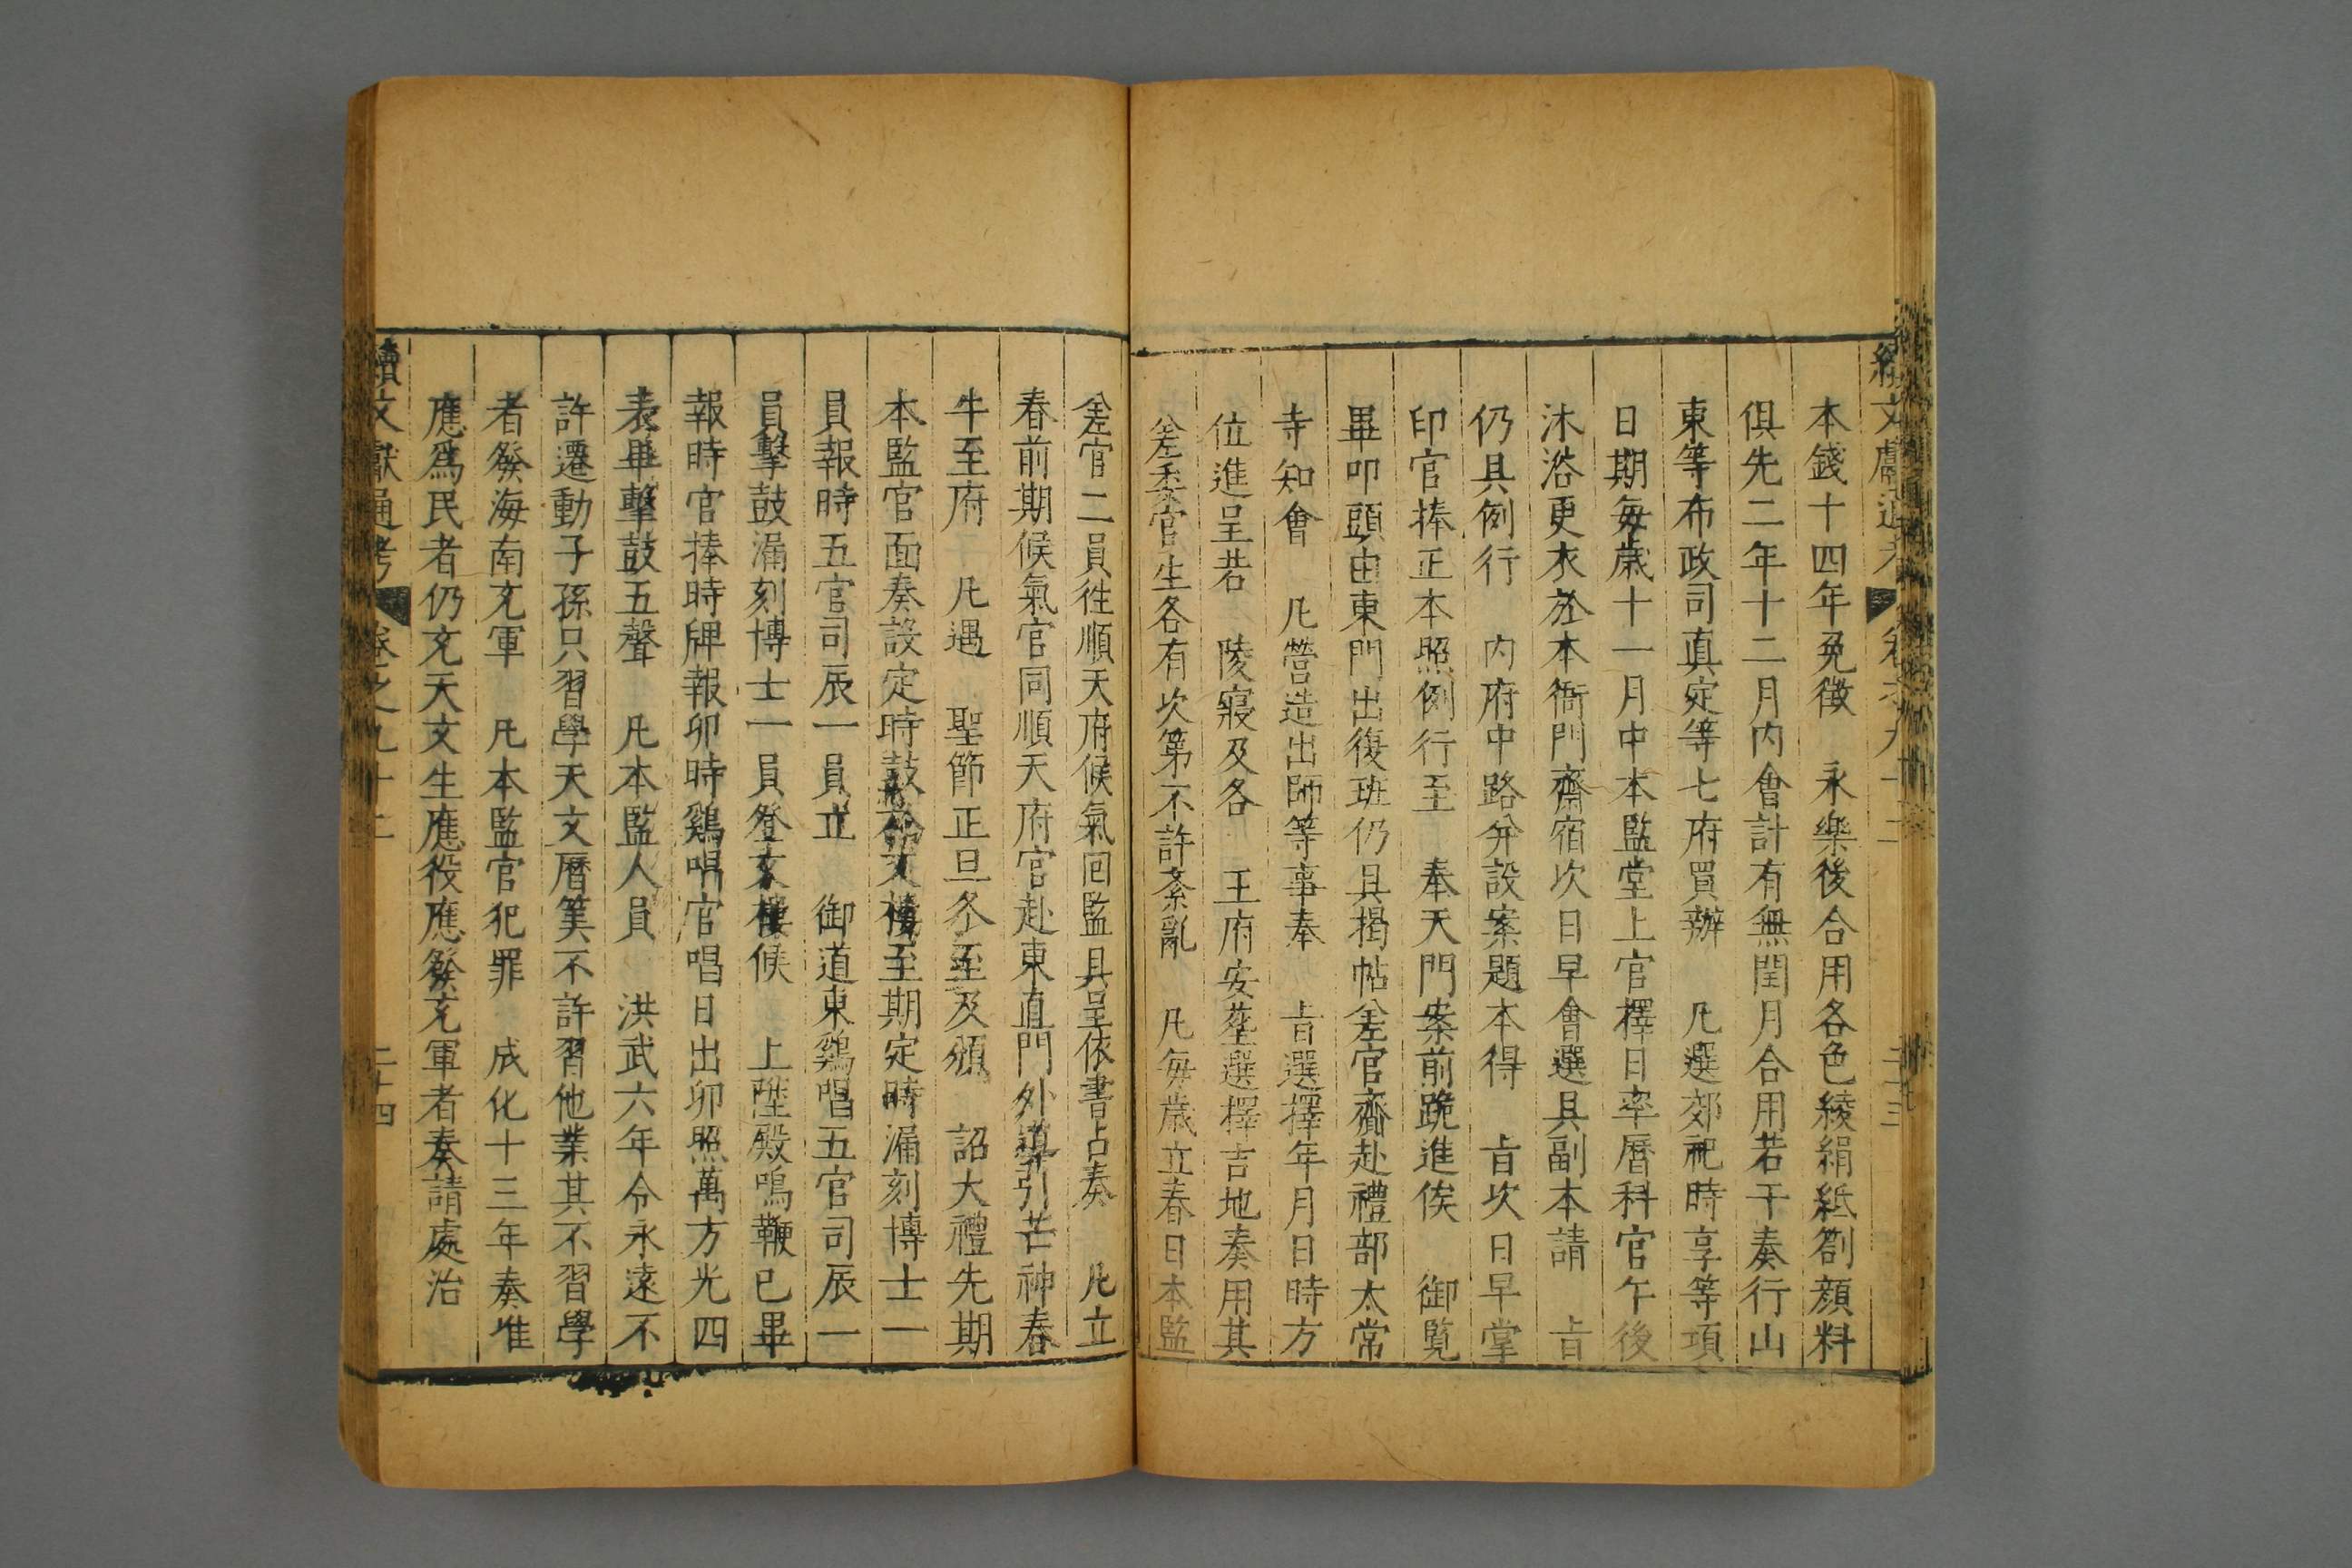 續文獻通考 卷之九十二 二十三
本錢十四年免徵 永樂後合用各色綾絹紙劄顔料
俱先二年十二月内會計有無閏月合用若干奏行山
東等布政司真定等七府買辦 凡選郊祀時享等項
日期每歲十一月中本監堂上官擇日率曆科官午後
沐浴更衣於本衙門齋宿次日早會選具副本請 旨
仍具例行 内府中路分設案題本得 旨次日早掌
印官捧正本照例行至 奉天門案前跪進俟 御覧
畢叩頭由東門出復班仍具揭帖差官齎赴禮部太常
寺知會 凡營造出師等事奉 旨選擇年月日時方
位進呈若 陵寢及各 王府安塟選擇吉地奏用其
差委官生各有次第不許紊亂 凡每歲立春日本監
差官二員徃順天府候氣回監具呈依書占奏 凡立
春前期候氣官同順天府官赴東直門外導引芒神春
牛至府 凡遇 聖節正旦冬至及頒 詔大禮先期
本監官面奏設定時鼓於文樓至期定時漏刻博士一
員報時五官司辰一員立 御道東鷄唱五官司辰一
員擊鼓漏刻博士一員登文樓候 上陞殿鳴鞭已畢
報時官捧時牌報卯時鷄唱官唱日出卯照萬方光四
表畢擊鼓五聲 凡本監人員 洪武六年令永遠不
許遷動子孫只習學天文曆筭不許習他業其不習學
者發海南充軍 凡本監官犯罪 成化十三年奏准
應爲民者仍充天文生應役應發充軍者奏請處治
續文獻通考 卷之九十二 二十四